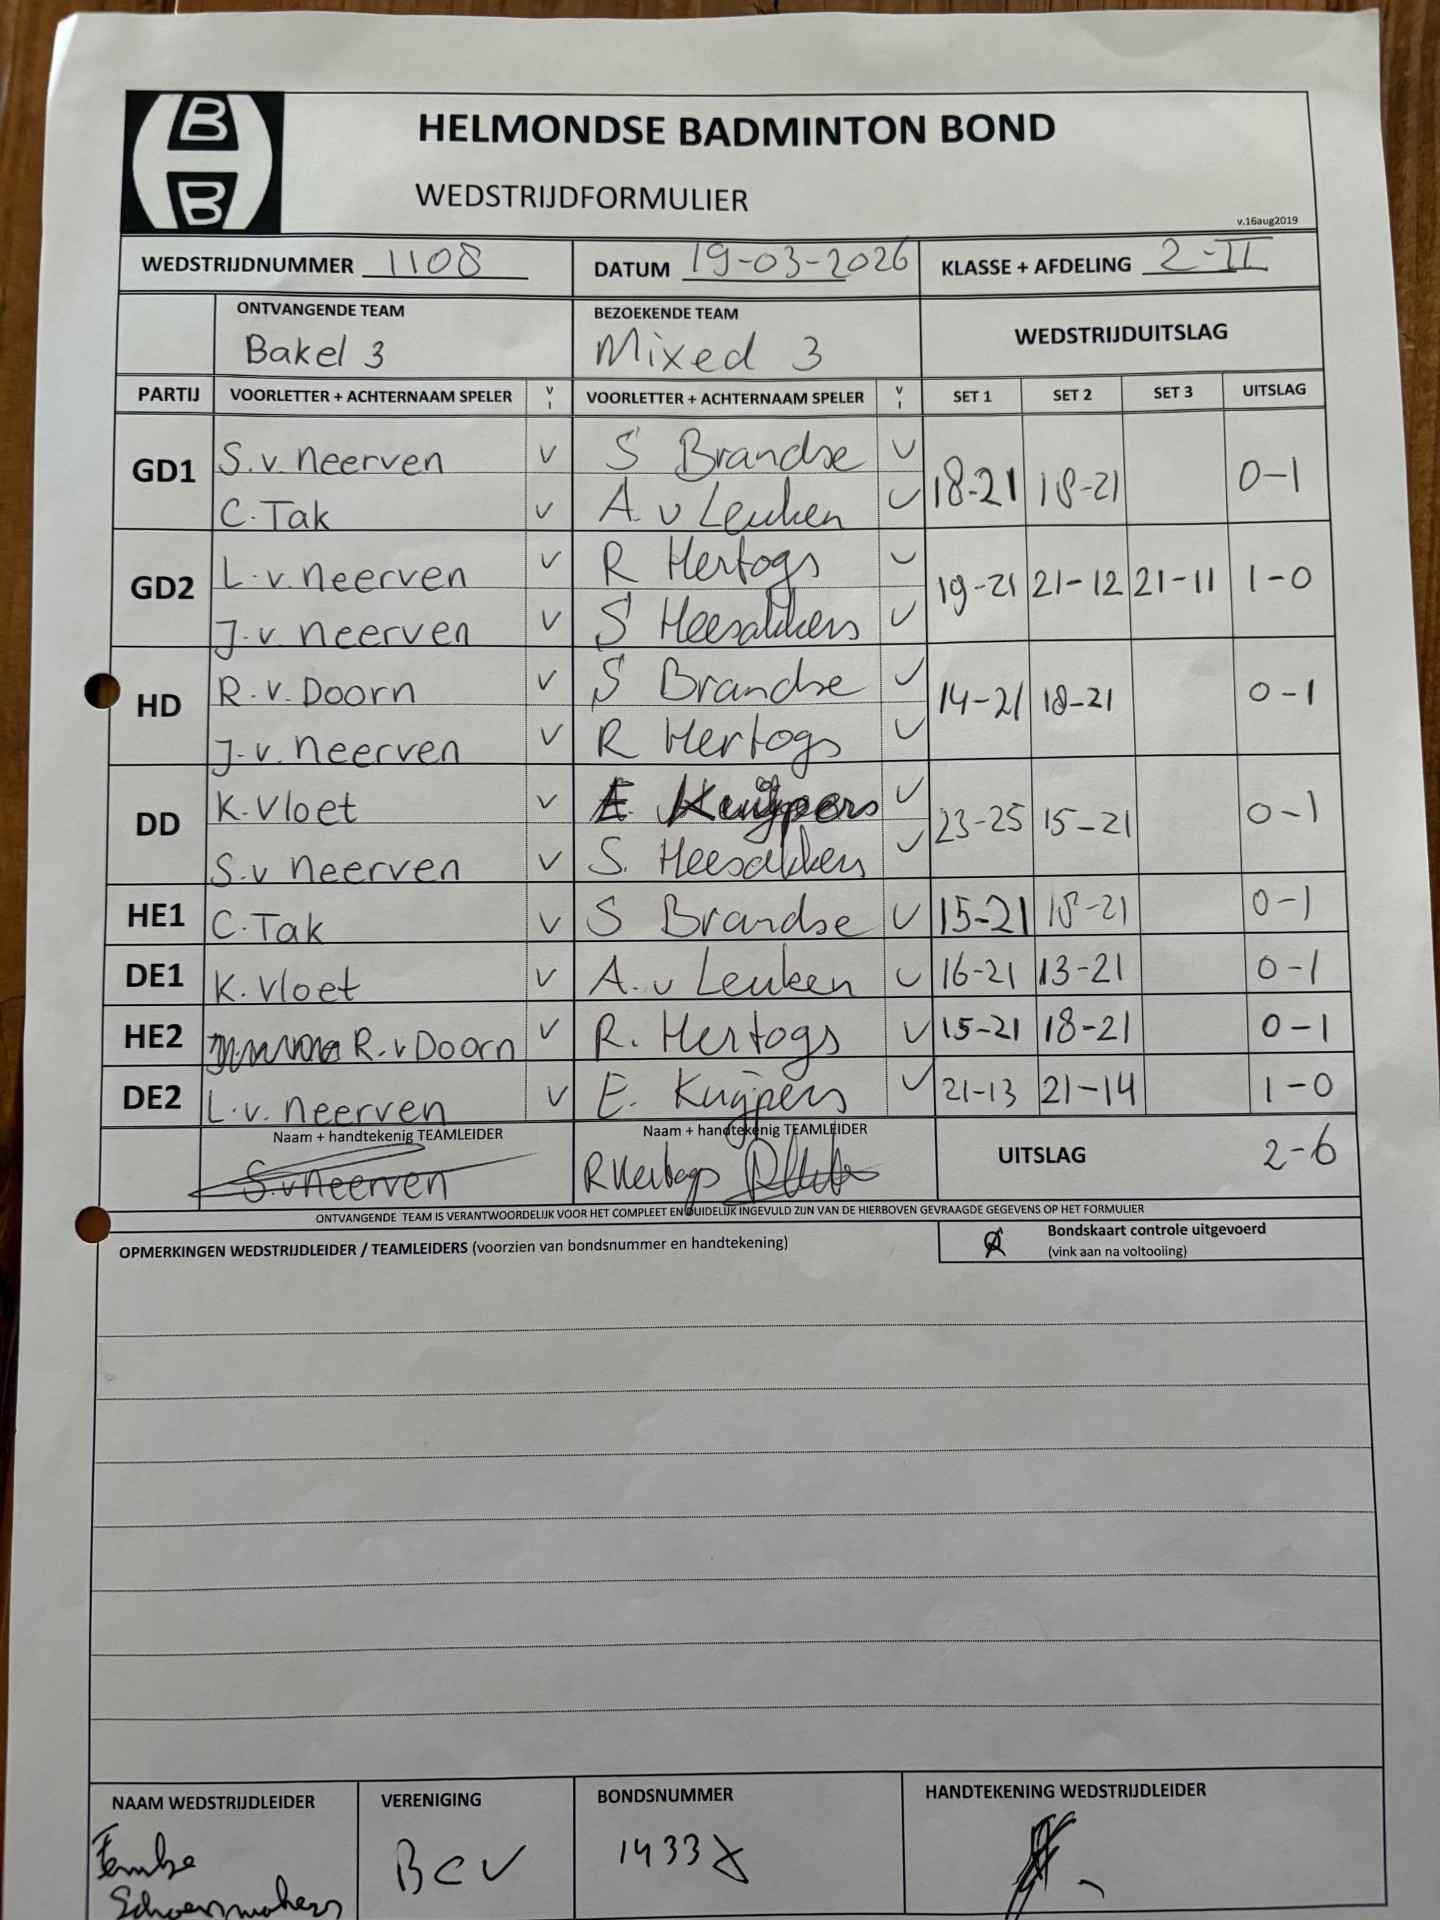 B
B
HELMONDSE BADMINTON BOND
WEDSTRIJDFORMULIER
v.16aug2019
WEDSTRIJDNUMMER 1108 DATUM 19-03-2026 KLASSE + AFDELING 2-II
ONTVANGENDE TEAM BEZOEKENDE TEAM WEDSTRIJDUITSLAG
Bakel 3 Mixed 3
PARTIJ VOORLETTER + ACHTERNAAM SPELER V I VOORLETTER + ACHTERNAAM SPELER V I SET 1 SET 2 SET 3 UITSLAG
GD1 S.v. Neerven V S Brandse V 18-21 18-21 0-1
C. Tak V A. v Leuken V
GD2 L.v. Neerven V R Hertogs V 19-21 21-12 21-11 1-0
J.v. Neerven V S Heesakkers V
HD R.v. Doorn V S Brandse V 14-21 18-21 0-1
J.v. Neerven V R Hertogs V
DD K. Vloet V E. Kuijpers V 23-25 15-21 0-1
S.v Neerven V S. Heesakkers V
HE1 C. Tak V S Brandse V 15-21 18-21 0-1
DE1 K. Vloet V A. v Leuken V 16-21 13-21 0-1
HE2 R.v Doorn V R. Hertogs V 15-21 18-21 0-1
DE2 L.v. Neerven V E. Kuijpers V 21-13 21-14 1-0
Naam + handtekenig TEAMLEIDER Naam + handtekenig TEAMLEIDER UITSLAG 2-6
S.v Neerven R Hertogs
ONTVANGENDE TEAM IS VERANTWOORDELIJK VOOR HET COMPLEET EN DUIDELIJK INGEVULD ZIJN VAN DE HIERBOVEN GEVRAAGDE GEGEVENS OP HET FORMULIER
OPMERKINGEN WEDSTRIJDLEIDER / TEAMLEIDERS (voorzien van bondsnummer en handtekening) Bondskaart controle uitgevoerd
(vink aan na voltooling)
NAAM WEDSTRIJDLEIDER VERENIGING BONDSNUMMER HANDTEKENING WEDSTRIJDLEIDER
Femke BCV 1433
Schoenmakers